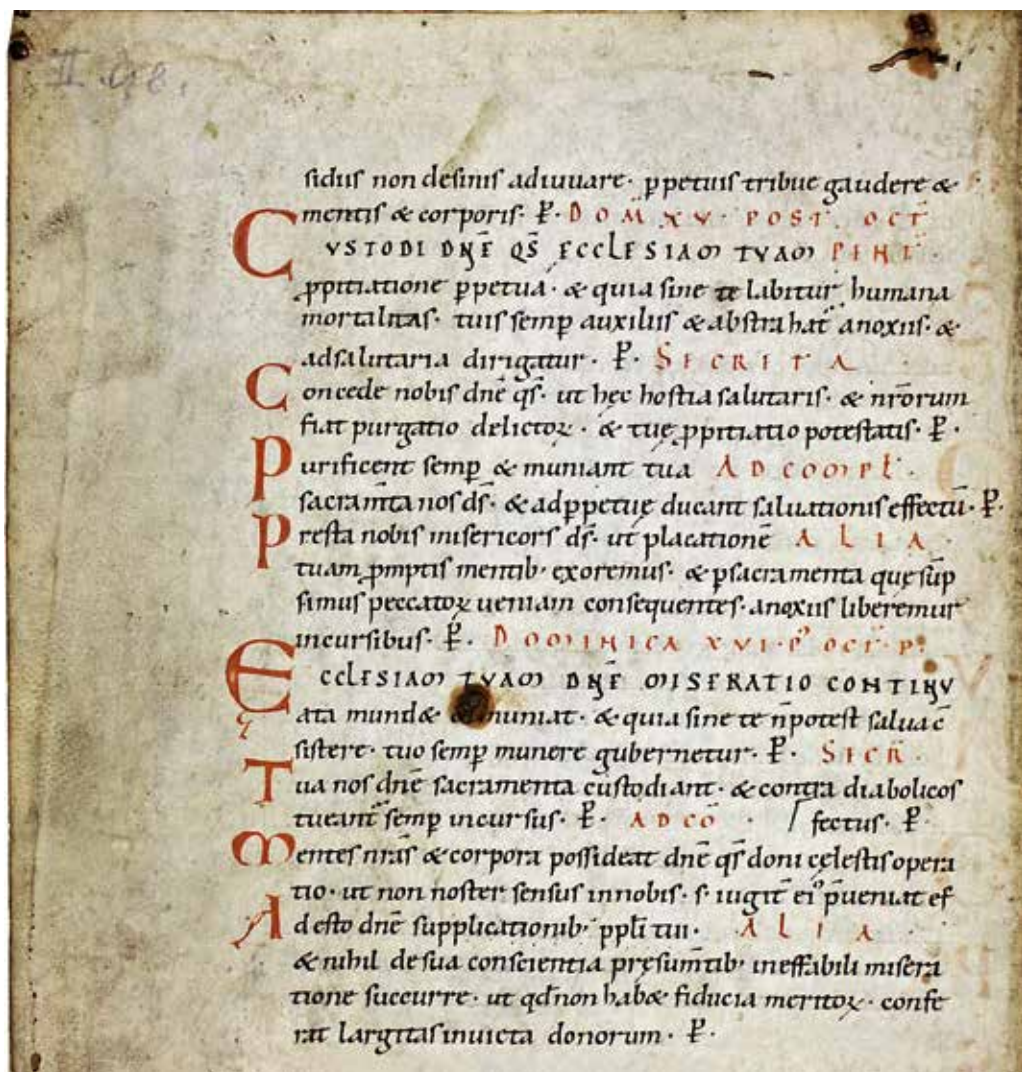 II. 98.
sidus non desinis adiuuare· p̱petuis tribue gaudere &
mentis & corporis· P̱· DOM̄ XV· POST· OCT̄
CVSTODI DN̄E QS̄ ECCLESIAM TVAM PENT·
ꝓpitiatione ꝑpetua· & quia sine te labitur humana
mortalitas· tuis semꝑ auxiliis & abstrahat̄ anoxiis· &
adsalutaria dirigatur· P̱· SECRETA
Concede nobis dn̄e qs̄· ut hęc hostia salutaris· & nr̄orum
fiat purgatio delictoꝝ· & tuę ꝓpitiatio potestatis· P̱·
Purificent semꝑ & muniant tua AD COMPL̄·
sacram̄ta nos ds̄· & adꝑpetuę ducant saluationis effectū· P̱·
Presta nobis misericors ds̄· ut placationē ALIA
tuam ꝓmptis mentib· exoremus· & ꝑsacramenta quę sūp
simus peccatoꝝ ueniam consequentes· anoxiis liberemur
incursibus· P̱· DOMINICA XVI· Po OCT· P·
ECCLESIAM TVAM DN̄E MISERATIO CONTINV
ata mund& & muniat· & quia sine te n̄potest salua c̄
sistere· tuo semꝑ munere gubernetur· P̱· SECR̄·
Tua nos dn̄e sacramenta custodiant· & contra diabolicos
tueant̄ semꝑ incursus· P̱· AD CŌ· fectus· P̱·
Mentes nr̄as & corpora possideat dn̄e qs̄ doni cęlestis opera
tio· ut non noster sensus innobis· s· iugit̄ ei' p̄ueniat ef
Adesto dn̄e supplicationib· ppl̄i tui· ALIA
& nihil de sua conscientia pręsum̄tib· ineffabili misera
tione succurre· ut qd̄ non hab& fiducia meritoꝝ· confe
rat largitas inuicta donorum· P̱·